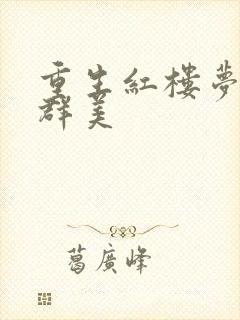 重生紅樓夢
群美
葛廣峰